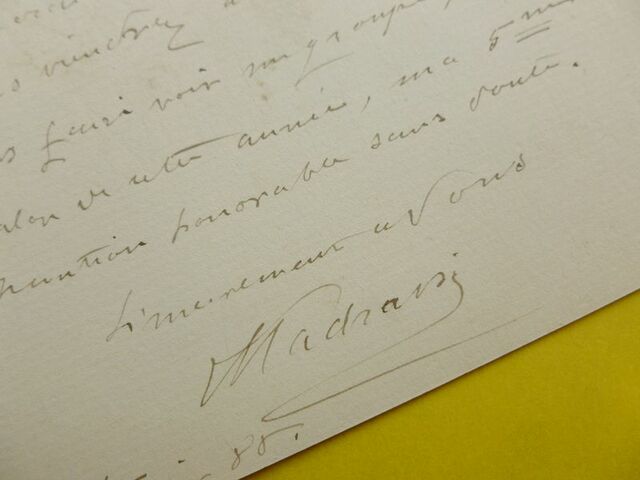 viendrez
faire voir un groupe,
de cette année, ma 5me
mention honorable sans doute.
Sincèrement a Vous
Madrassi
88.